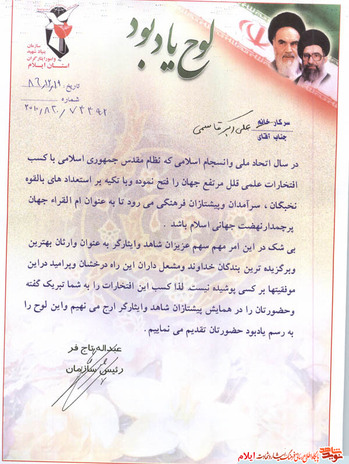 لوح یادبود
سازمان
بنیاد شهید
وامور ایثارگران
استان ایلام
تاریخ:
شماره
سرکار خانم
جناب آقای
علی اکبر قاسمی
در سال اتحاد ملی وانسجام اسلامی که نظام مقدس جمهوری اسلامی با کسب
افتخارات علمی قلل مرتفع جهان را فتح نموده وبا تکیه بر استعداد های بالقوه
نخبگان ، سرآمدان وپیشتازان فرهنگی می رود تا به عنوان ام القراء جهان
پرچمدارنهضت جهانی اسلام باشد .
بی شک در این امر مهم سهم عزیزان شاهد وایثارگر به عنوان وارثان بهترین
وبرگزیده ترین بندگان خداوند ومشعل داران این راه درخشان وپرامید دراین
موفقیتها بر کسی پوشیده نیست. لذا کسب این افتخارات را به شما تبریک گفته
وحضورتان را در همایش پیشتازان شاهد وایثارگر ارج می نهیم واین لوح را
به رسم یادبود حضورتان تقدیم می نماییم .
عبداله تاج فر
رئیس سازمان